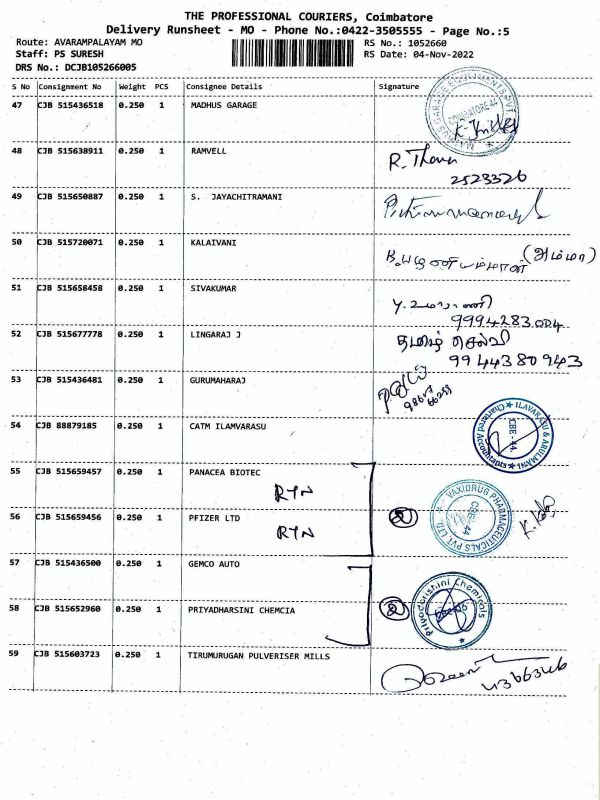 THE PROFESSIONAL COURIERS, Coimbatore
Delivery Runsheet - MO - Phone No.:0422-3505555 - Page No.:5
Route: AVARAMPALAYAM MO RS No.: 1052660
Staff: PS SURESH RS Date: 04-Nov-2022
DRS No.: DCJB105266005
S No Consignment No Weight PCS Consignee Details Signature
47 CJB 515436518 0.250 1 MADHUS GARAGE
48 CJB 515638911 0.250 1 RAMVELL
2523326
49 CJB 515650887 0.250 1 S. JAYACHITRAMANI
50 CJB 515720071 0.250 1 KALAIVANI (அம்மா)
51 CJB 515658458 0.250 1 SIVAKUMAR
52 CJB 515677778 0.250 1 LINGARAJ J தமிழ் செல்வி
9944380943
53 CJB 515436481 0.250 1 GURUMAHARAJ
54 CJB 88879185 0.250 1 CATM ILAMVARASU
ILAVARASU & ARULMANI Chartered Accountants CBE - 44.
55 CJB 515659457 0.250 1 PANACEA BIOTEC
RTN
56 CJB 515659456 0.250 1 PFIZER LTD
RTN
VAXIDRUG PHARMACEUTICALS PVT. LTD.
57 CJB 515436500 0.250 1 GEMCO AUTO
58 CJB 515652960 0.250 1 PRIYADHARSINI CHEMCIA
Priyadarsini Chemicals
59 CJB 515603723 0.250 1 TIRUMURUGAN PULVERISER MILLS